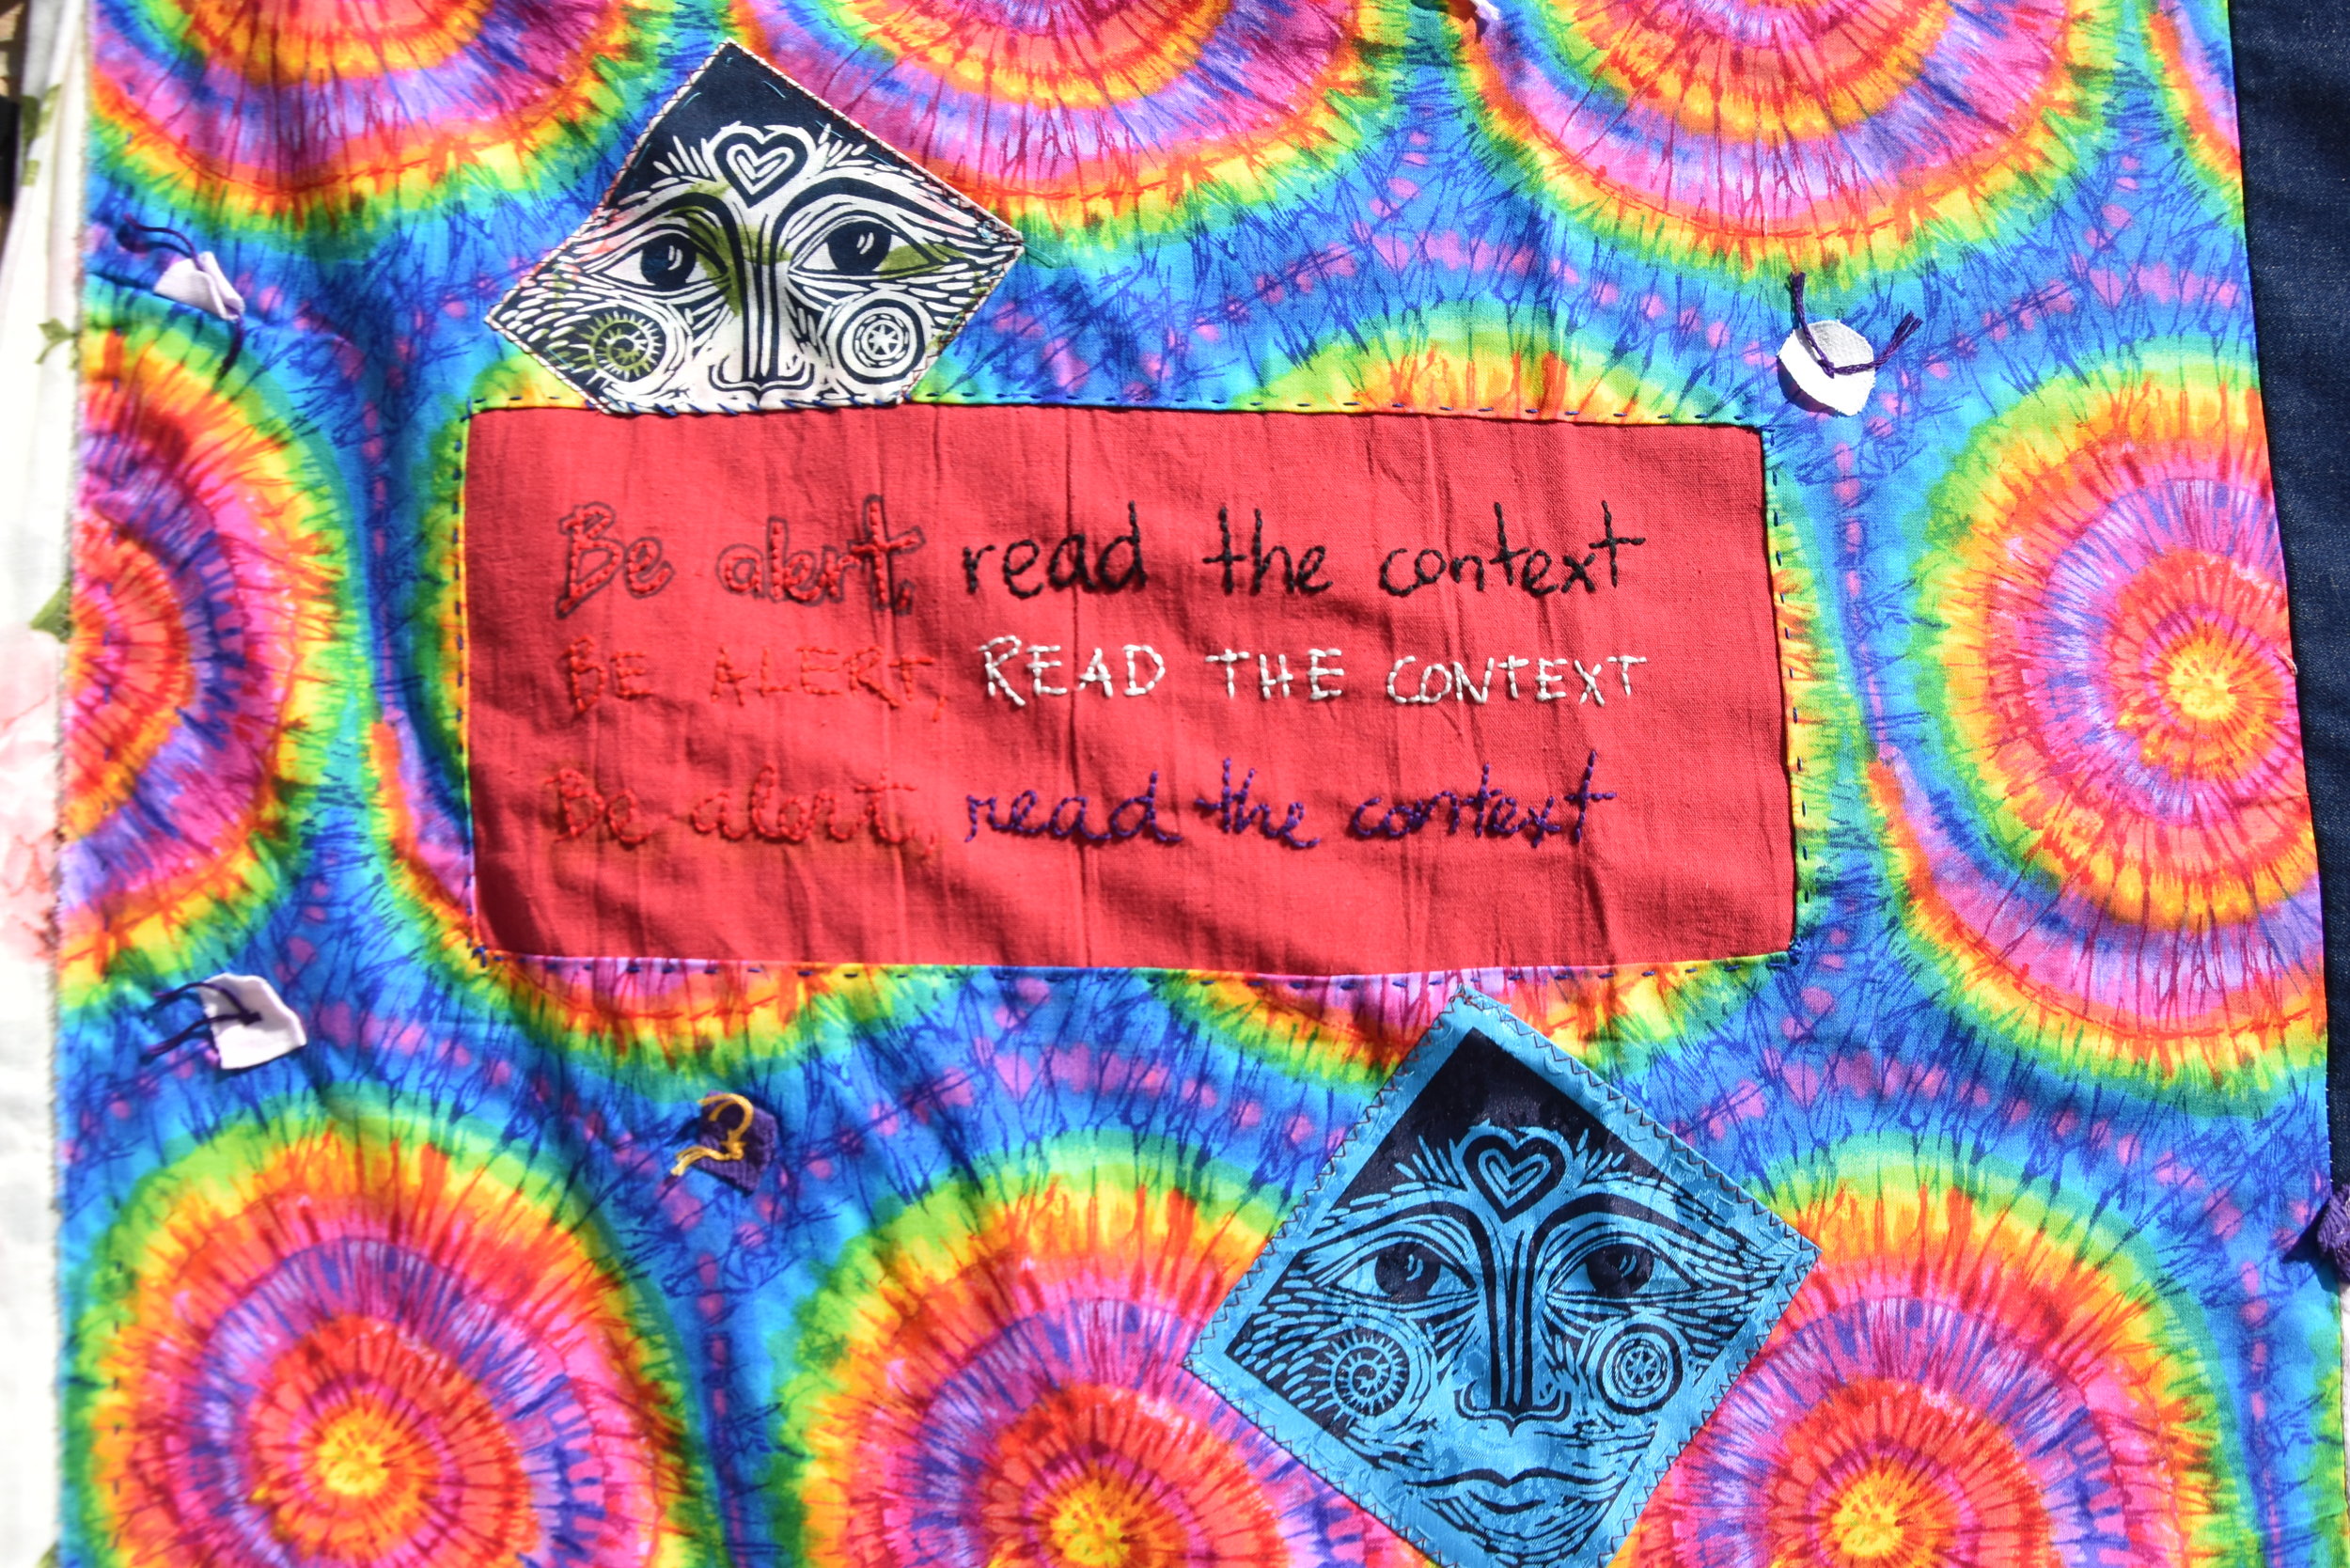 Be alert, read the context
BE ALERT, READ THE CONTEXT
Be alert, read the context